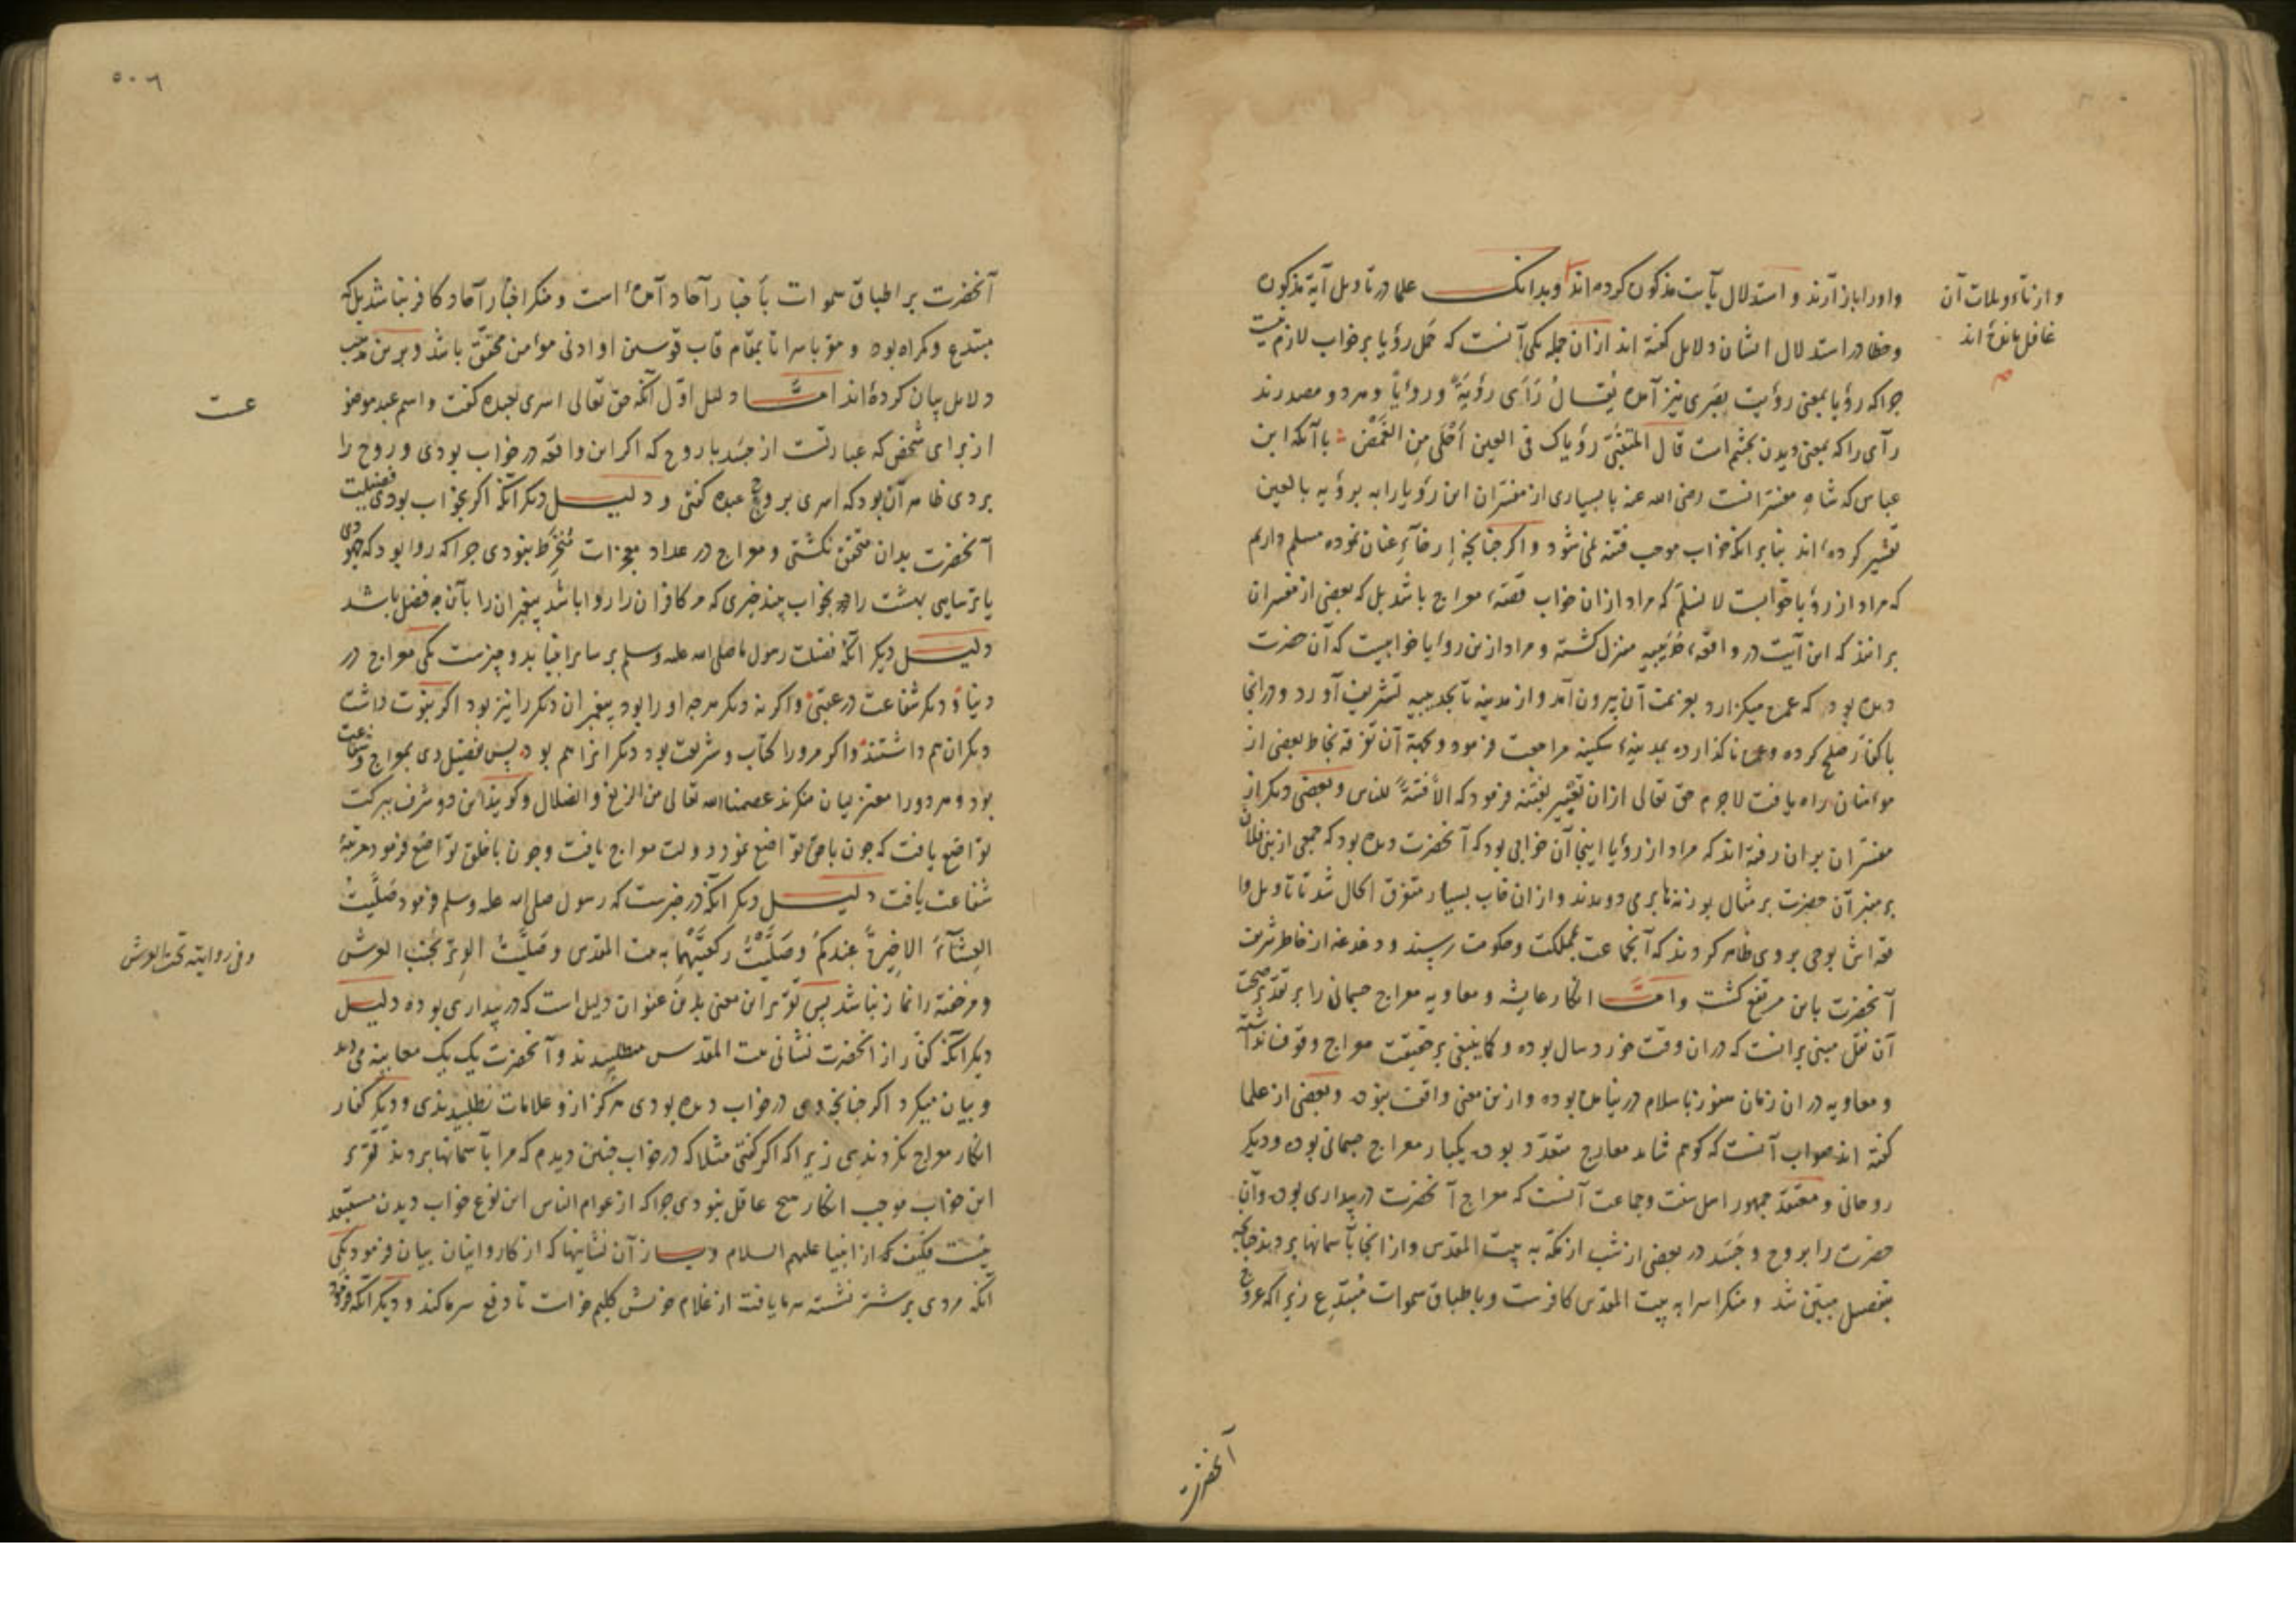 واورا باز آرند و استدلال بآیت مذکور کرده اند و بدانک علما در تاویل آیهٔ مذکوره
وخطا در استدلال ایشان دلایل گفته اند ازان جمله یکی آنست که حمل رؤیا برخواب لازم نیست
چراکه رؤیا بمعنی رؤیت بصری نیز آمده یقال رَأی رؤیَةً ورؤیاً وهر دو مصدرند
رآی را که بمعنی دیدن بچشم است قال المتنبّی رؤیاک فی العین أحْلَی مِن الغَمْض باآنکه ابن
عباس که شاه مفسرانست رضی الله عنه با بسیاری از مفسران این رؤیا را به برؤیه بالعین
تفسیر کرده اند بنابر انکه خواب موجب فتنه نمی شود واکر چنانچه إرخآءِ عنان نموده مسلم داریم
که مراد از رؤیا خوابست لا نسلم که مراد ازان خواب قصّهٔ معراج باشد بل که بعضی از مفسران
برانند که این آیت در واقعهٔ حُدَیبیه منزل کشته و مراد ازین رؤیا خوابیست که آن حضرت
دیده بود که عمره میکزارد بعزیمت آن بیرون آمد واز مدینه تا بحدیبیه تشریف آورد ودرانجا
با کفار صلح کرده وعمره ناکذارده بمدینهٔ سکینه مراجعت فرمود وبجهة آن تفرقه بخاطر بعضی از
مؤمنان راه یافت لاجرم حق تعالی ازان تعبیر بفتنه فرمود که الّا فتنةً للناس وبعضی دیکر از
مفسران بران رفته اند که مراد از رؤیا اینجا آن خوابی بود که آنحضرت دیده بود که جمعی از بنی فلان
بر منبر آن حضرت بر مثال بوزنه ها بری دویدند وازان قاب بسیار متفرق الحال شد تا تاویل وا
قعه اش بوحی بروی ظاهر کردند که آنجماعت بمملکت وحکومت رسیدند ودغدغه از خاطر شریف
آنحضرت باین مرتفع کشت وامّا انکار عایشه و معاویه معراج جسمانی را بر تقدیر صحت
آن نقل مبنی برانست که دران وقت خورد سال بوده وکما ینبغی بر حقیقت معراج وقوف نداشته
و معاویه دران زمان هنوز باسلام در نیامده بوده وازین معنی واقف نبوده وبعضی از علما
کفته اند صواب آنست که کوهم شاید معارج متعدّد بوده یکبار معراج جسمانی بوده ودیکر
روحانی ومعتقد جمهور اهل سنت وجماعت آنست که معراج آنحضرت در بیداری بوده وآن
حضرت را بروح وجَسَد در بعضی از شب از مکّه به بیت المقدس واز انجا بآسمانها بردند چنانچه
بتفصیل مبیّن شد ومنکر اسرا به بیت المقدس کافرست وباطباق سموات مُبتدِع زیراکه عروج
وازتأویلات آن
غافل مانده اند
آنحضرت
٥٠٦
آنحضرت بر اطباق سموات بأخبار آحاد آمده است ومنکر اخبار آحاد کافر نباشد بل که
مبتدع وکمراه بود ومقر باسرا تا بمقام قاب قوسین او ادنی مؤمن محقّق باشد وبرین مذهب
دلایل بیان کرده اند امّا دلیل اوّل آنکه حق تعالی اسری بعبده کفت واسم عبد موضو
از برای شخص که عبارتست از جسَد با روح که اکر این واقعه در خواب بودی وروح را
بردی ظاهر آن بود که اسری بروح عبده کفتی و دلیل دیکر آنکه اکر بخواب بودی فضیلت
آنحضرت بدان متحقق نکشتی ومعراج در عداد معجزات مُنخرط نبودی چراکه روا بود که جهودی
یا ترسایی بهشت را بخواب بیند چیزی که مر کافران را روا باشد پیغمبران را بآن چه فضل باشد
دلیل دیکر آنکه فضیلت رسول ما صلی الله علیه وسلم بر سایر انبیا بدو چیزست یکی معراج در
دنیا و دیکر شفاعت در عقبی واکرنه دیکر هرچه او را بود پیغمبران دیکر را نیز بود اکر نبوت داشت
دیکران هم داشتند واکر مرورا کتاب وشریعت بود دیکرانرا هم بود پس تفضیل وی بمعراج وشفاعت
بود وهر دورا معتزلیان منکرند عصمنا الله تعالی من الزیغ والضلال وکویند این دو شرف ببرکت
تواضع یافت که چون با حق تواضع نمود دولت معراج یافت وچون با خلق تواضع فرمود مرتبهٔ
شفاعت یافت دلیل دیکر آنکه در خبرست که رسول صلی الله علیه وسلم فرمود صَلَّیتُ
العِشآءَ الاخیرةَ عِندکُم وصَلَّیْتُ رکعتَیْها به بیت المقدس وصَلَّیتُ الوِترَ بجنب العرش
وخفته را نماز نباشد پس تقریر این معنی بدین عنوان دلیل است که در بیداری بوده دلیل
دیکر آنکه کفار از آنحضرت نشانی بیت المقدس میطلبیدند وآنحضرت یک یک معاینه می دید
وبیان میکرد اکر چنانچه وی در خواب دیده بودی هرکز ازو علامات نطلبیدندی ودیکر کفار
انکار معراج نکردندی زیراکه اکر کفتی مثلا که در خواب چنین دیدم که مرا بآسمانها بردند تقریر
این خواب موجب انکار هیچ عاقل نبودی چراکه از عوام الناس این نوع خواب دیدن مستبعد
نیست فکیف که از انبیا علیهم السلام و بساز آن نشانیها که از کاروانیان بیان فرمود یکی
آنکه مردی بر شتر نشسته سرما یافت از غلام خویش کلیم خواست تا دفع سرما کند ودیکر آنکه فرمود
عـت
وفی روایة تحت العرش